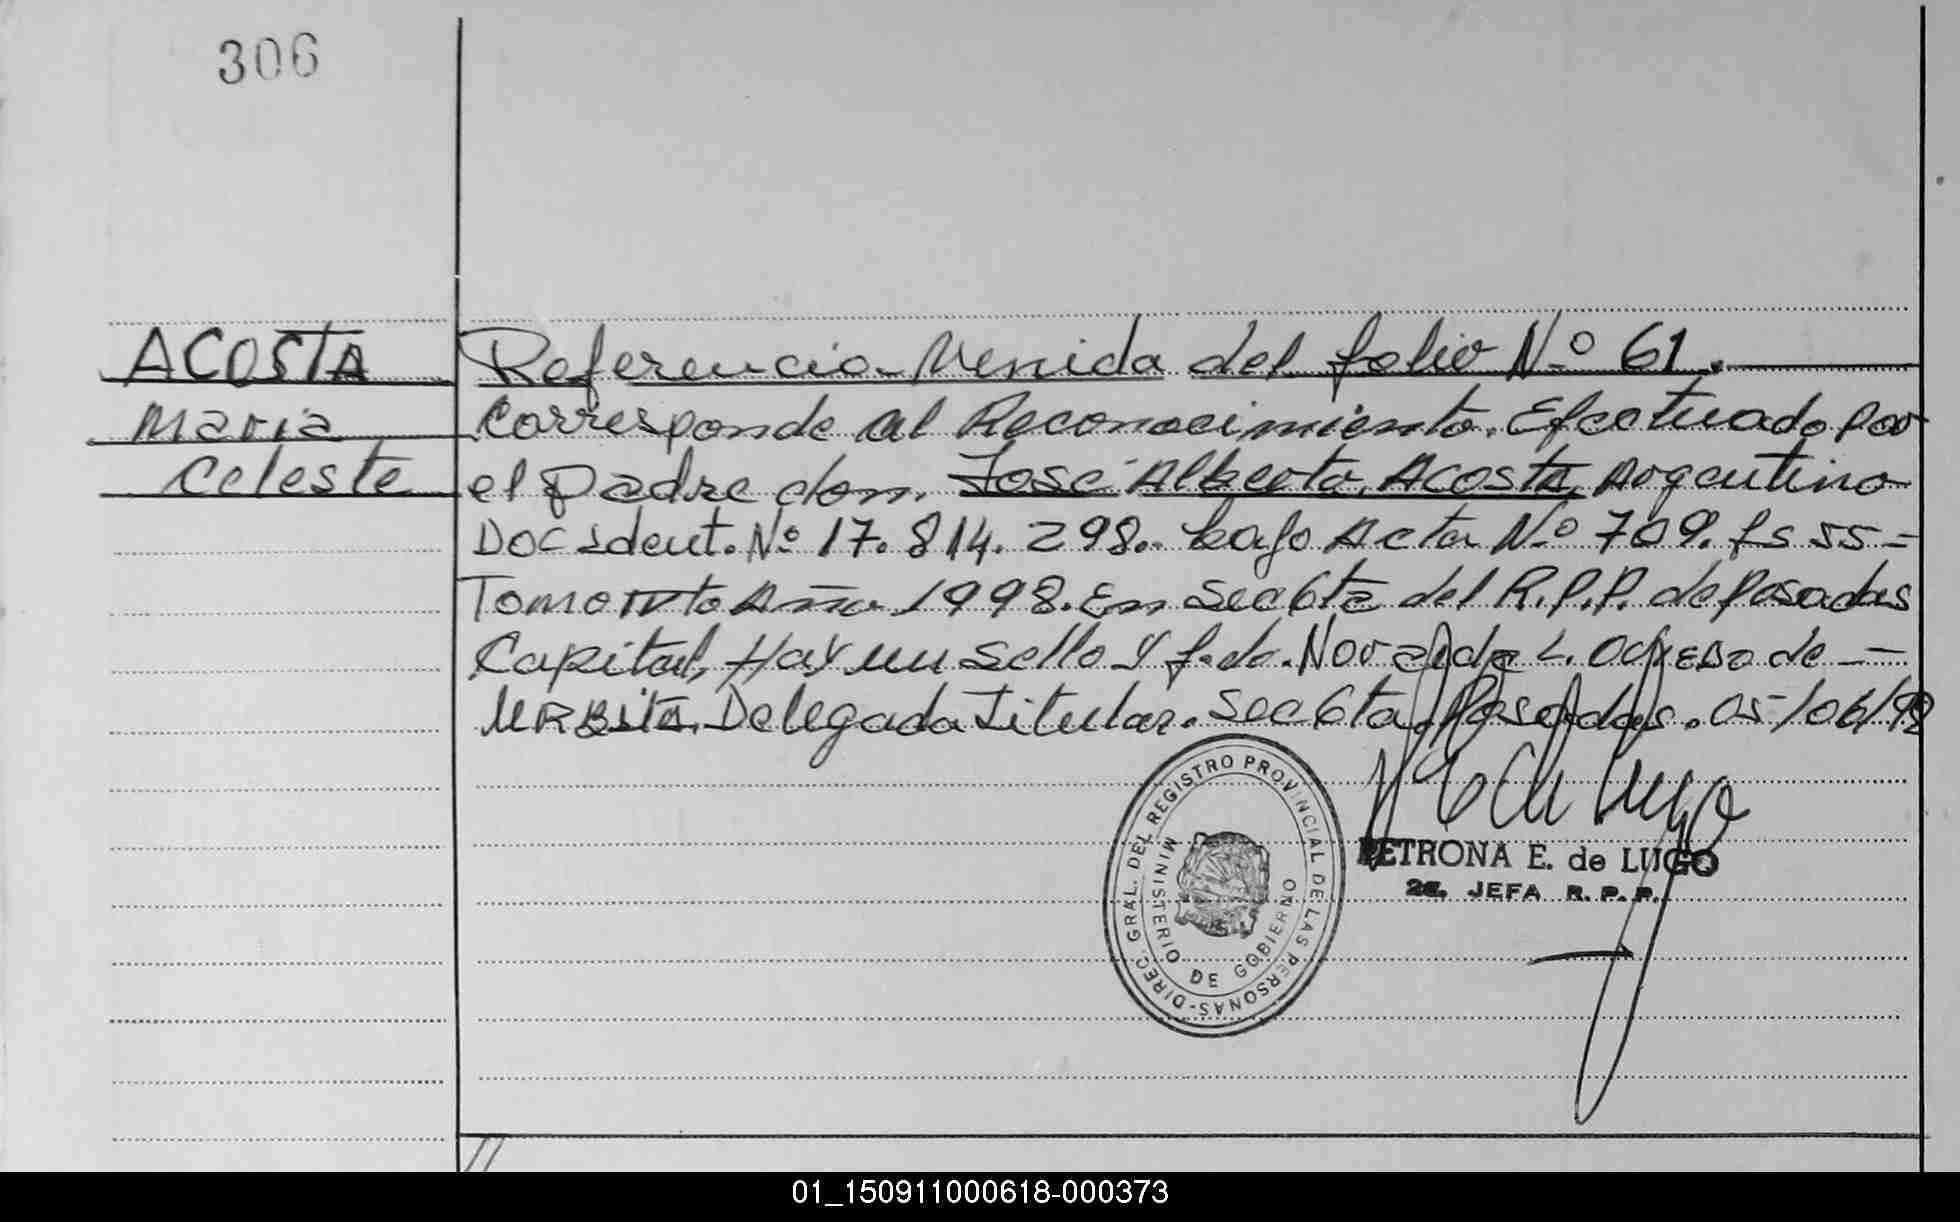 306
ACOSTA
Maria
Celeste
Referencia Venida del folio Nº 61.
Corresponde al Reconocimiento. Efectuado Por
el Padre don. José Alberto ACOSTA, Argentino
Doc Ident. Nº 17.814.298.. bajo Acta Nº 709. fs 55=
Tomo IVto Año 1998. En Sec 6ta del R.P.P. de Posadas
Capital, Hay un Sello Y f.do. L. de —
URBITA. Delegada Titular. Sec 6ta. Posadas. 05/06/98
DIREC. GRAL. DEL REGISTRO PROVINCIAL DE LAS PERSONAS-
MINISTERIO DE GOBIERNO
PETRONA E. de LUGO
2a. JEFA R. P. P.
01_150911000618-000373